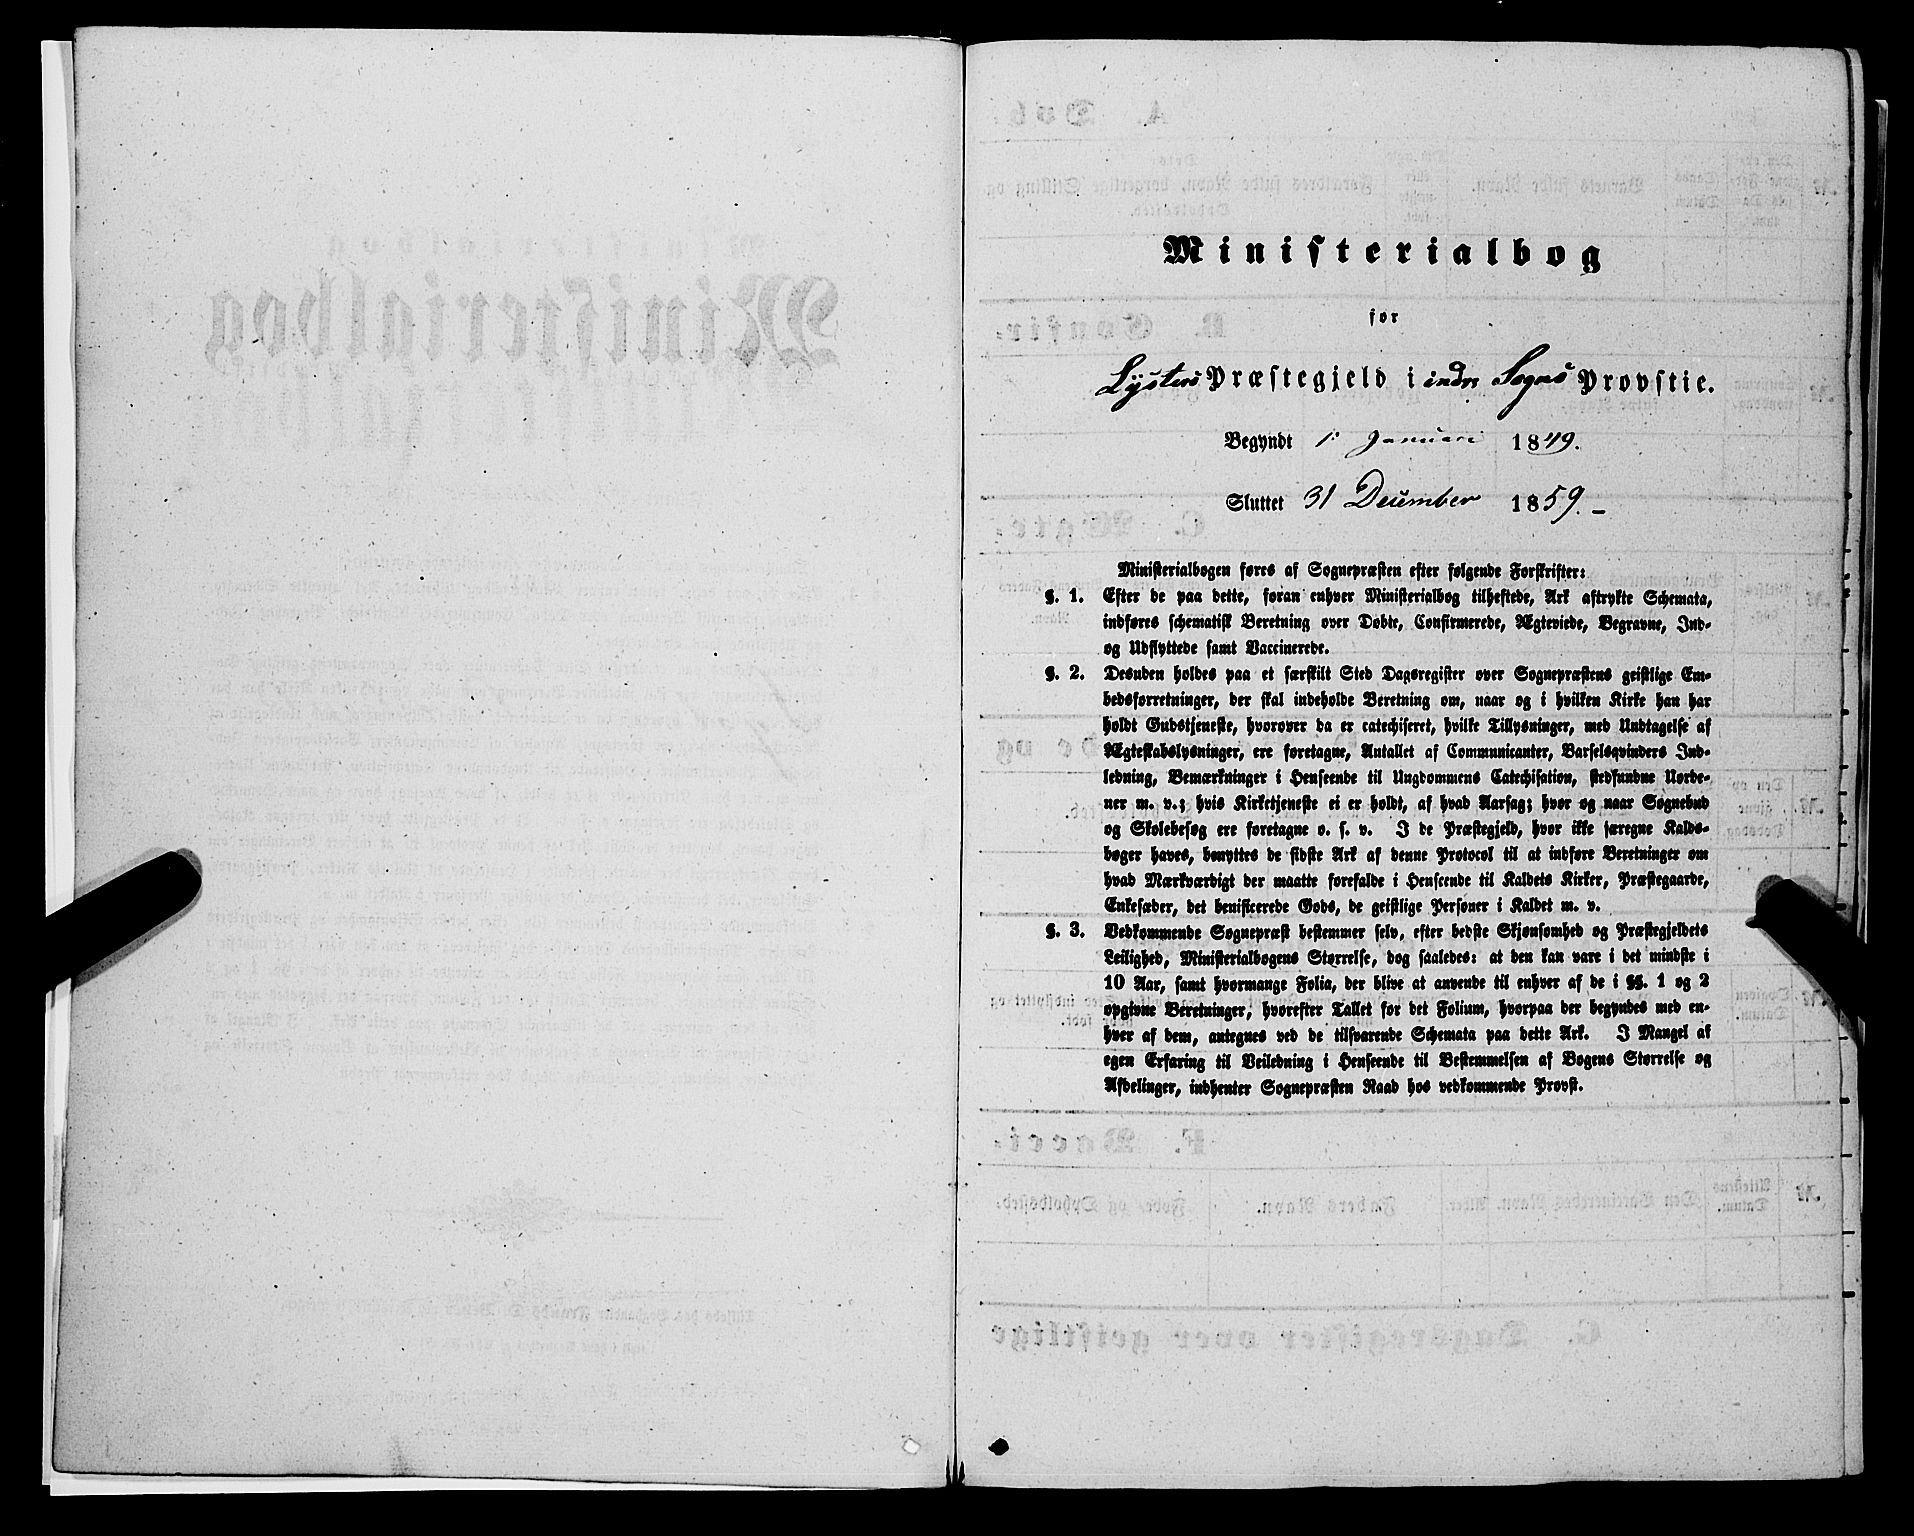 Ministerialbog
for
Lysters Præstegjeld i indre Sogns Provstie.
Begyndt 1. Januari 1849.
Sluttet 31 December 1859.
Ministerialbogen føres af Sognepræsten efter følgende Forskrifter:
§. 1. Efter de paa dette, foran enhver Ministerialbog tilheftede, Ark aftrykte Schemata,
indføres schematisk Beretning over Døbte, Confirmerede, Ægteviede, Begravne, Ind-
og Udflyttede samt Vaccinerede.
§. 2. Desuden holdes paa et særskilt Sted Dagsregister over Sognepræstens geistlige Em-
bedsforretninger, der skal indeholde Beretning om, naar og i hvilken Kirke han har
holdt Gudstjeneste, hvorover da er catechiseret, hvilke Tillysninger, med Undtagelse af
Ægteskabslysninger, ere foretagne, Antallet af Communicanter, Barselqvinders Ind-
ledning, Bemærkninger i Henseende til Ungdommens Catechisation, stedfundne Uorde-
ner m. v.; hvis Kirketjeneste ei er holdt, af hvad Aarsag; hvor og naar Sognebud
og Skolebesøg ere foretagne o. s. v. I de Præstegjeld, hvor ikke særegne Kalds-
bøger haves, benyttes de sidste Ark af denne Protocol til at indføre Beretninger om
hvad Mærkværdigt der maatte forefalde i Henseende til Kaldets Kirker, Præstegaarde,
Enkesæder, det beneficerede Gods, de geistlige Personer i Kaldet m. v.
§. 3. Vedkommende Sognepræst bestemmer selv, efter bedste Skjønsomhed og Præstegjeldets
Leilighed, Ministerialbogens Størrelse, dog saaledes: at den kan vare i det mindste i
10 Aar, samt hvormange Folia, der blive at anvende til enhver af de i §§. 1 og 2
opgivne Beretninger, hvorefter Tallet for det Folium, hvorpaa der begyndes med en-
hver af dem, antegnes ved de tilsvarende Schemata paa dette Ark. I Mangel af
egen Erfaring til Veiledning i Henseende til Bestemmelsen af Bogens Størrelse og
Afdelinger, indhenter Sognepræsten Raad hos vedkommende Provst.